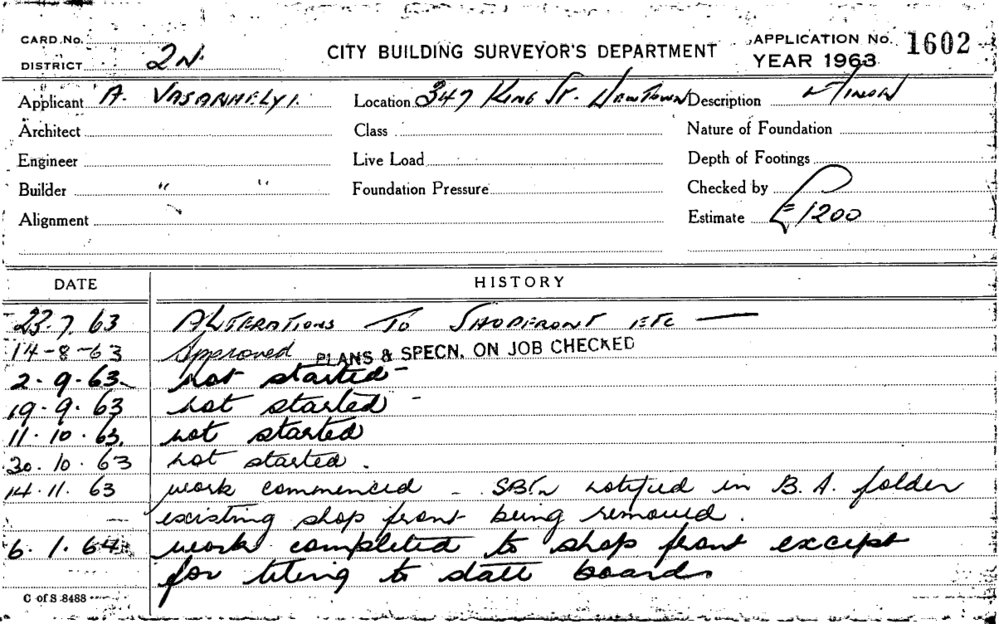 CARD No.
DISTRICT 2N.
CITY BUILDING SURVEYOR'S DEPARTMENT
APPLICATION No. 1602
YEAR 1963
Applicant A. VASARHELYI. Location 347 KING ST. NEWTOWN Description MINOR
Architect Class Nature of Foundation
Engineer Live Load Depth of Footings
Builder " " Foundation Pressure Checked by
Alignment Estimate £1200
DATE HISTORY
23.7.63 ALTERATIONS TO SHOPFRONT ETC —
14-8-63 Approved PLANS & SPECN. ON JOB CHECKED
2.9.63 not started -
19.9.63 not started -
11.10.63. not started
30.10.63 not started.
14.11.63 work commenced - notified in B.A. folder
existing shop front being removed.
6.1.64 work completed to shop front except
for tiling to stall boards
C of S 8488